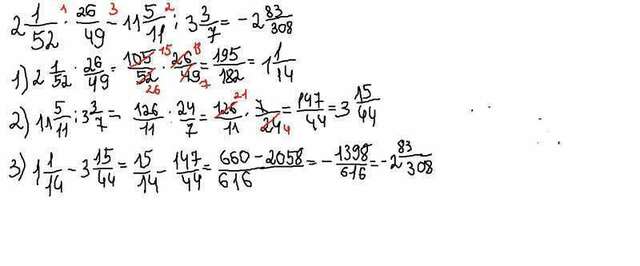 2 1/52 · 26/49 - 11 5/11 : 3 3/7 = -2 83/308
1 3 2
1) 2 1/52 · 26/49 = 105/52 · 26/49 = 195/182 = 1 1/14
15 13 26 7
2) 11 5/11 : 3 3/7 = 126/11 : 24/7 = 126/11 · 7/24 = 147/44 = 3 15/44
21 4
3) 1 1/14 - 3 15/44 = 15/14 - 147/44 = 660-2058/616 = -1398/616 = -2 83/308